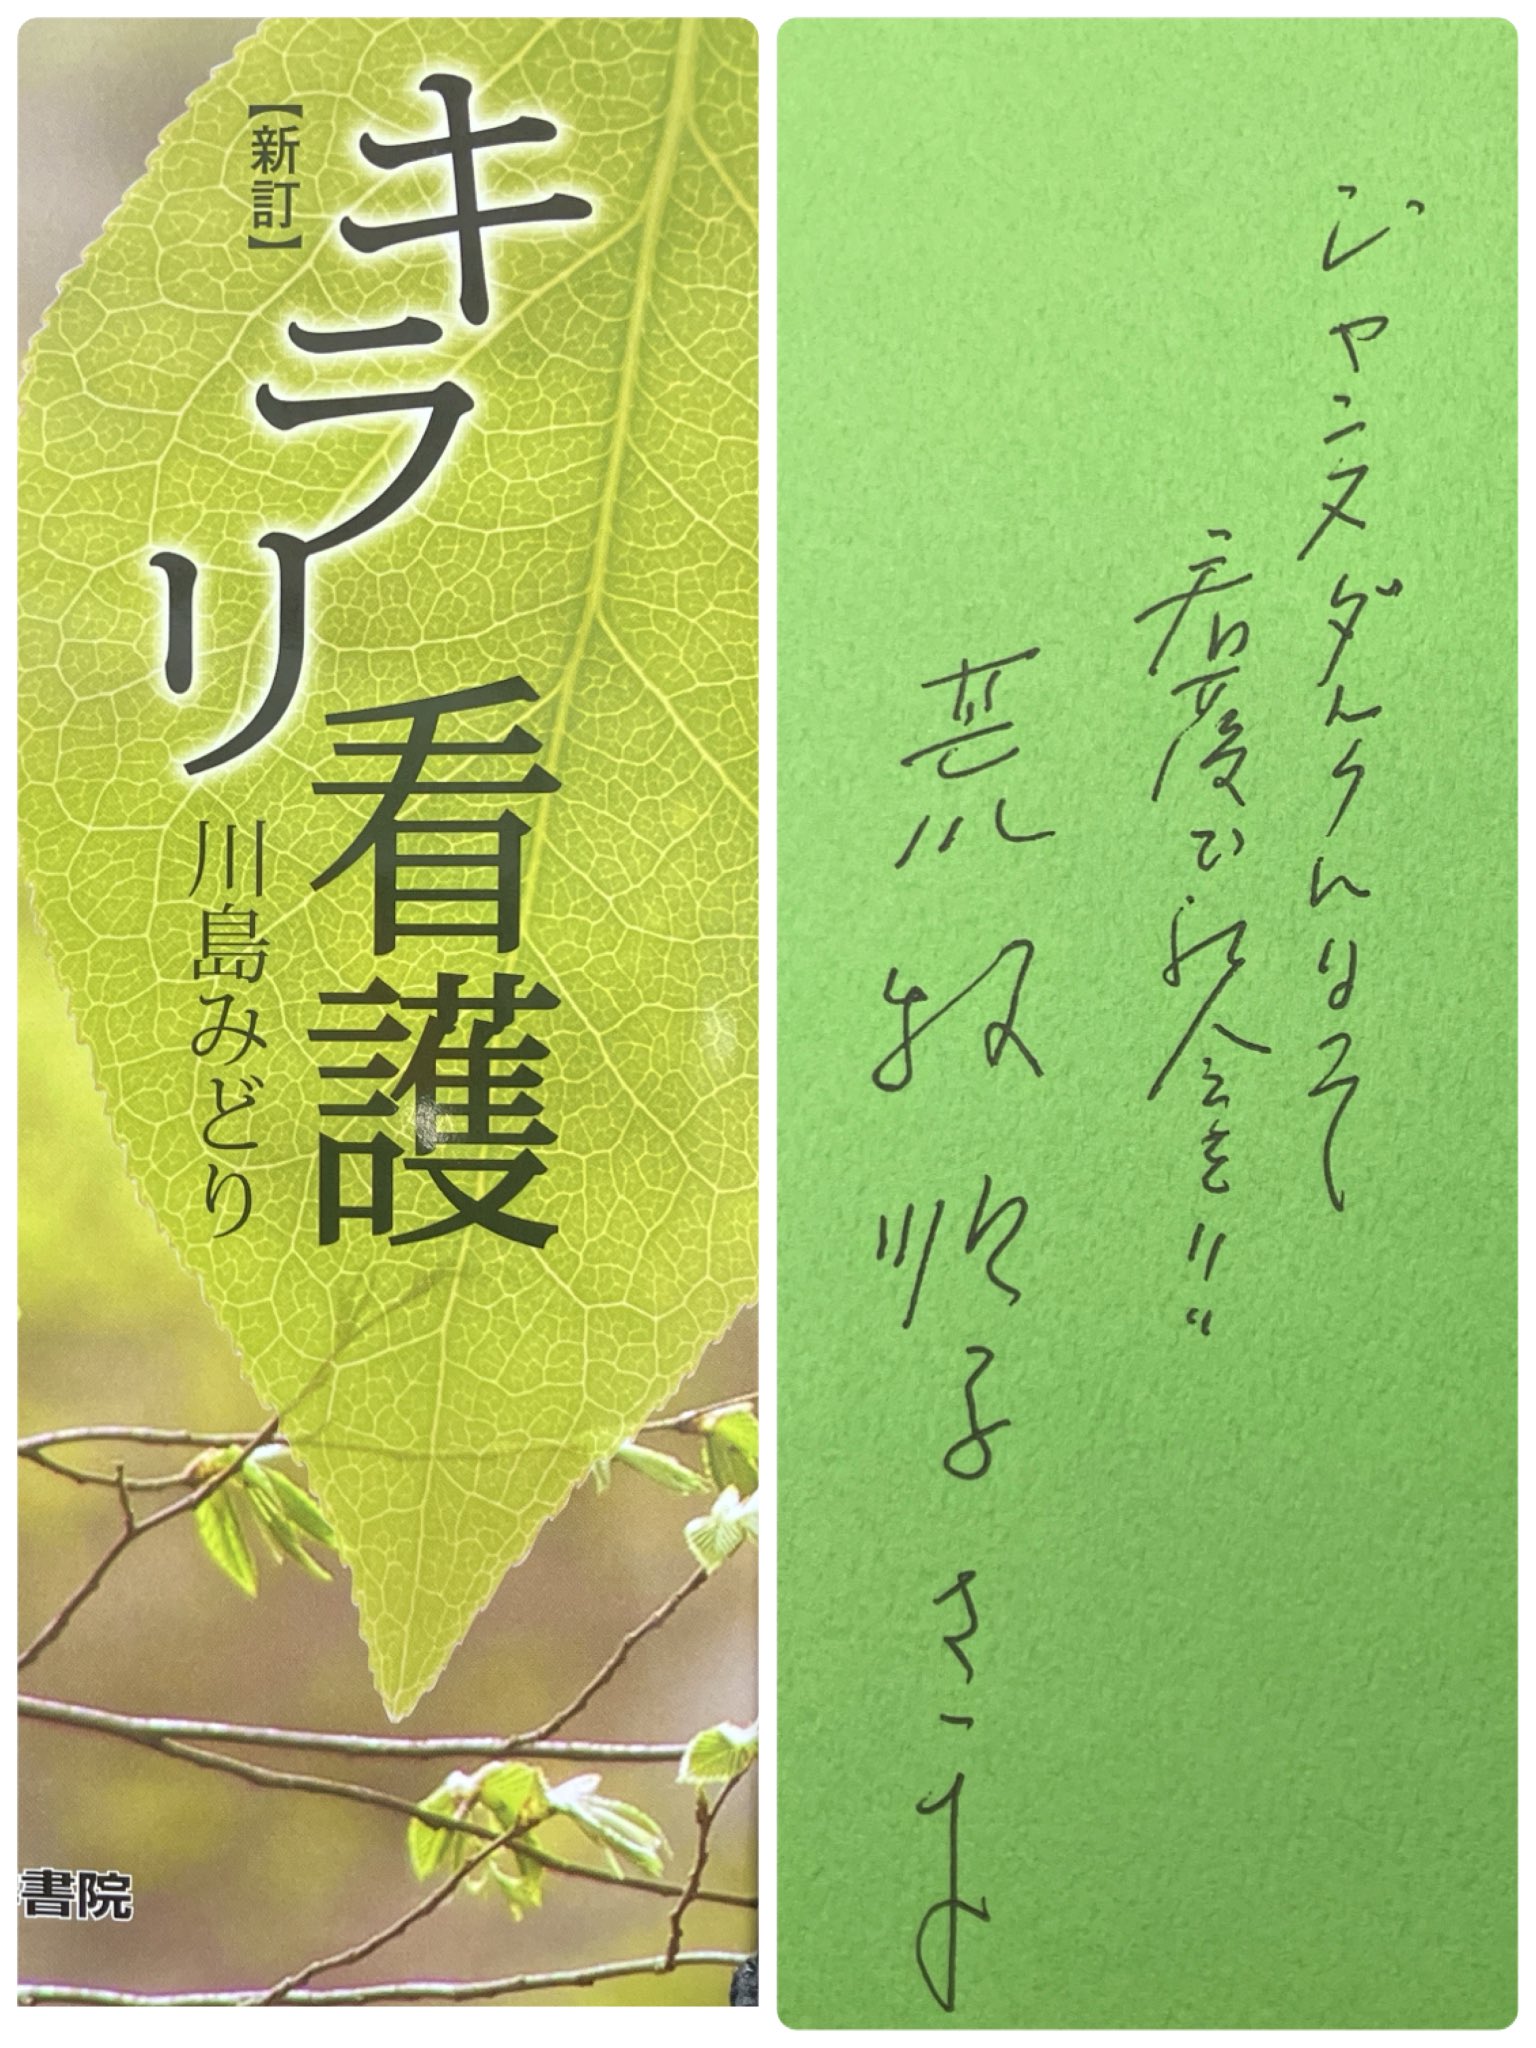 キラリ
看護
【新訂】
川島みどり
書院
ジャンヌダルクになって
看護で社会を!!
荒牧順子さま